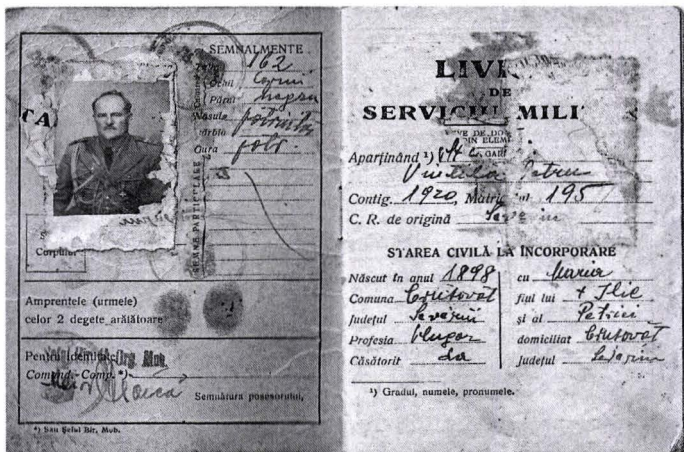 SEMNALMENTE
Talia 162
Ochii
Părul negru
Nasule potrivit
Bărbia
Gura potr.
SEMNE PARTICULARE
CA
Corpului
Amprentele (urmele)
celor 2 degete arătătoare
Pentru Identitate Org. Mob.
Comand.-Comp. *)
Semnătura posesorului,
*) Sau Șeful Bir. Mob.
LIV
DE
SERVICIUL MILIT
VE DE DO
DIN ELEM
GARI
Aparținând ¹)
Petru
Contig. 1920, Matric ul 195
C. R. de origină Severin
STAREA CIVILĂ LA ÎNCORPORARE
Născut în anul 1898
Comuna Crușovăț
Județul Severin
Profesia Plugar
Căsătorit da
cu Maria
fiul lui + Ilie
și al Petrii
domiciliat Crușovăț
județul Severin
¹) Gradul, numele, pronumele.